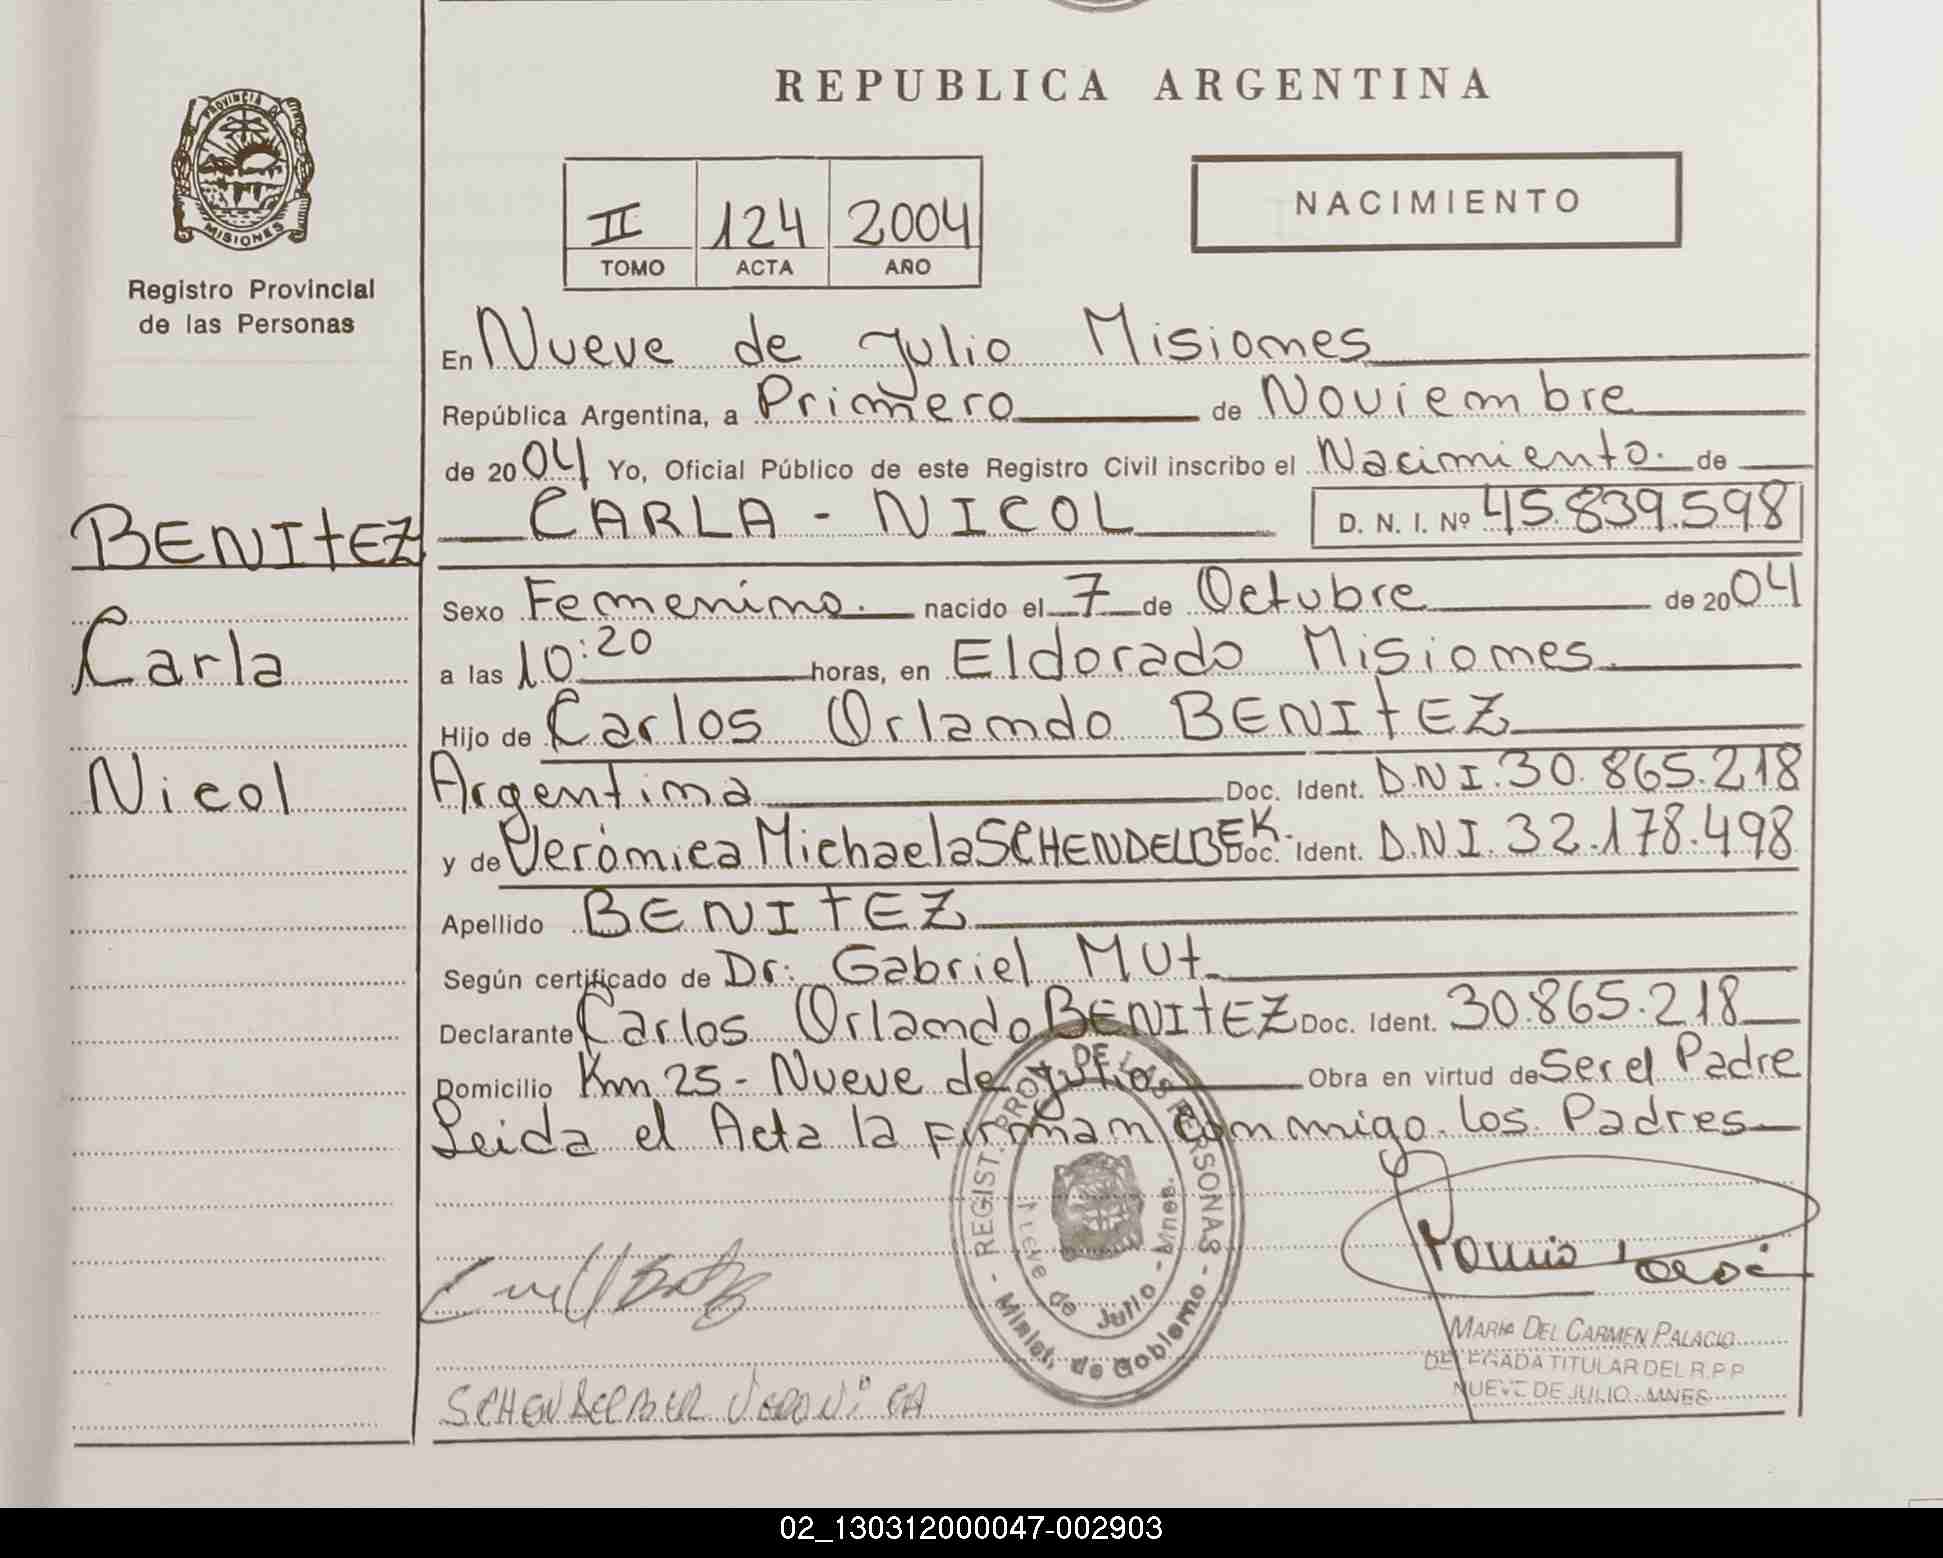 REPUBLICA ARGENTINA
PROVINCIA DE
MISIONES
Registro Provincial
de las Personas
II 124 2004
TOMO ACTA AÑO
NACIMIENTO
En Nueve de Julio Misiones
República Argentina, a Primero de Noviembre
de 2004 Yo, Oficial Público de este Registro Civil inscribo el Nacimiento. de
CARLA - NICOL D. N. I. Nº 45.839.598
BENITEZ
Carla
Nicol
Sexo Femenino. nacido el 7 de Octubre de 2004
a las 10:20 horas, en Eldorado Misiones.
Hijo de Carlos Orlando BENITEZ
Argentina Doc. Ident. D.N.I. 30.865.218
y de Verónica Michaela SCHENDELBEK. Doc. Ident. D.N.I. 32.178.498
Apellido BENITEZ
Según certificado de Dr. Gabriel MUt.
Declarante Carlos Orlando BENITEZ Doc. Ident. 30.865.218
Domicilio Km 25 - Nueve de Julio Obra en virtud de Ser el Padre
Leida el Acta la firman conmigo los Padres
REGIST. PROV. DE LAS PERSONAS
Nueve de Julio - Mnes.
Minist. de Gobierno
MARIA DEL CARMEN PALACIO
DELEGADA TITULAR DEL R.P.P
NUEVE DE JULIO - MNES
02_130312000047-002903